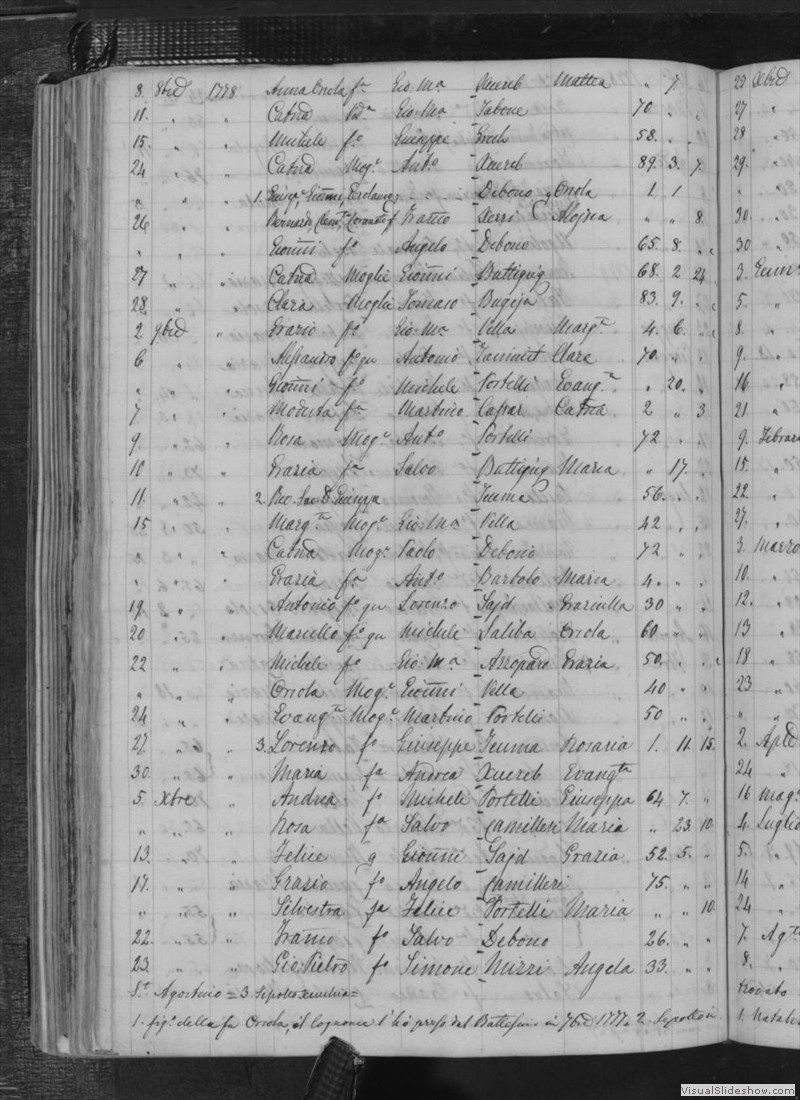 8. 8bre 1778 Anna Orsla fa Gio: Ma Xuereb Mattea " 7
11. " " Catna Vda Gio: Ma Tabone 70 " "
15. " " Michele fo Guiseppe Grech 58. " "
24 " " Catna Moge Anto Xuereb 89. 3. 7.
" " " 1. Debono Orsola 1 1
26 " " Bernardo, Franco Azzi Aloisea " " 8.
" " " Gionni fo Angelo Debono 65. 8. "
27 " " Catna Moglie Gionni Buttigieg 68. 2 24
28 " " Clara Moglie Tomaso Bugeja 83. 9. "
2. 9bre " Grazio fo Gio: Ma Vella Margta 4. 6. "
6 " " Alessandro fo qu Antonio Zammit Clara 70. " "
" " " Gionni fo Michele Portelli Evangta " 20. "
7 " " Modesta fa Martino Caspar Catna 2 " 3
9. " " Rosa Moge Anto Portelli 72 " "
10 " " Grazia fa Salvo Buttigieg Maria " 17. "
11. " " 2. Jumma 56. " "
15 " " Margta Moge Gio: Ma Vella 42 " "
" " " Catna Moge Paolo Debono 72 " "
" " " Grazia fa Anto Barbolo Maria 4. " "
19. " " Antonio fo qu Lorenzo Sajd Graziulla 30 " "
20 " " Marcello fo qu Michele Saliba Orsola 60 " "
22 " " Michele fo Gio: Ma Azzopard Grazia 50. " "
" " " Orsola Moge Gionni Vella 40 " "
24 " " Evangta Moge Martino Portelli 50 " "
27. " " 3. Lorenzo fo Giuseppe Jumma Rosaria 1. 11. 15.
30. " " Maria fa Andrea Xuereb Evangta
5. Xbre " Andrea fo Michele Portelli Giuseppa 64 7. "
" " " Rosa fa Salvo Camilleri Maria " 23. 10
13. " " Felice q Gionni Sajd Grazia 52. 5. "
17. " " Grazio fo Angelo Camilleri 75. " "
" " " Silvestra fa Felice Portelli Maria " " 10
22. " " Franco fo Salvo Debono 26. " "
23. " " Gio: Pietro fo Simone Mizzi Angela 33. " "
St Agostino = 3
1. figo della fa Orsola, il cognome l'ho preso dal Battesimo in 7bre 1777. 2. Sepolto in
29 Xbre
27 "
28 "
29. "
" "
30. "
30 "
3. Genn
5. "
8. "
9. "
16 "
21 "
9. Febrar
15. "
22. "
27. "
3. Marzo
10. "
12. "
13 "
18 "
23 "
" "
2. Aple
24 "
16 Mago
4. Luglio
5. "
14 "
24 "
7. Agto
8. "
trovato
1. Natali
VisualSlideshow.com